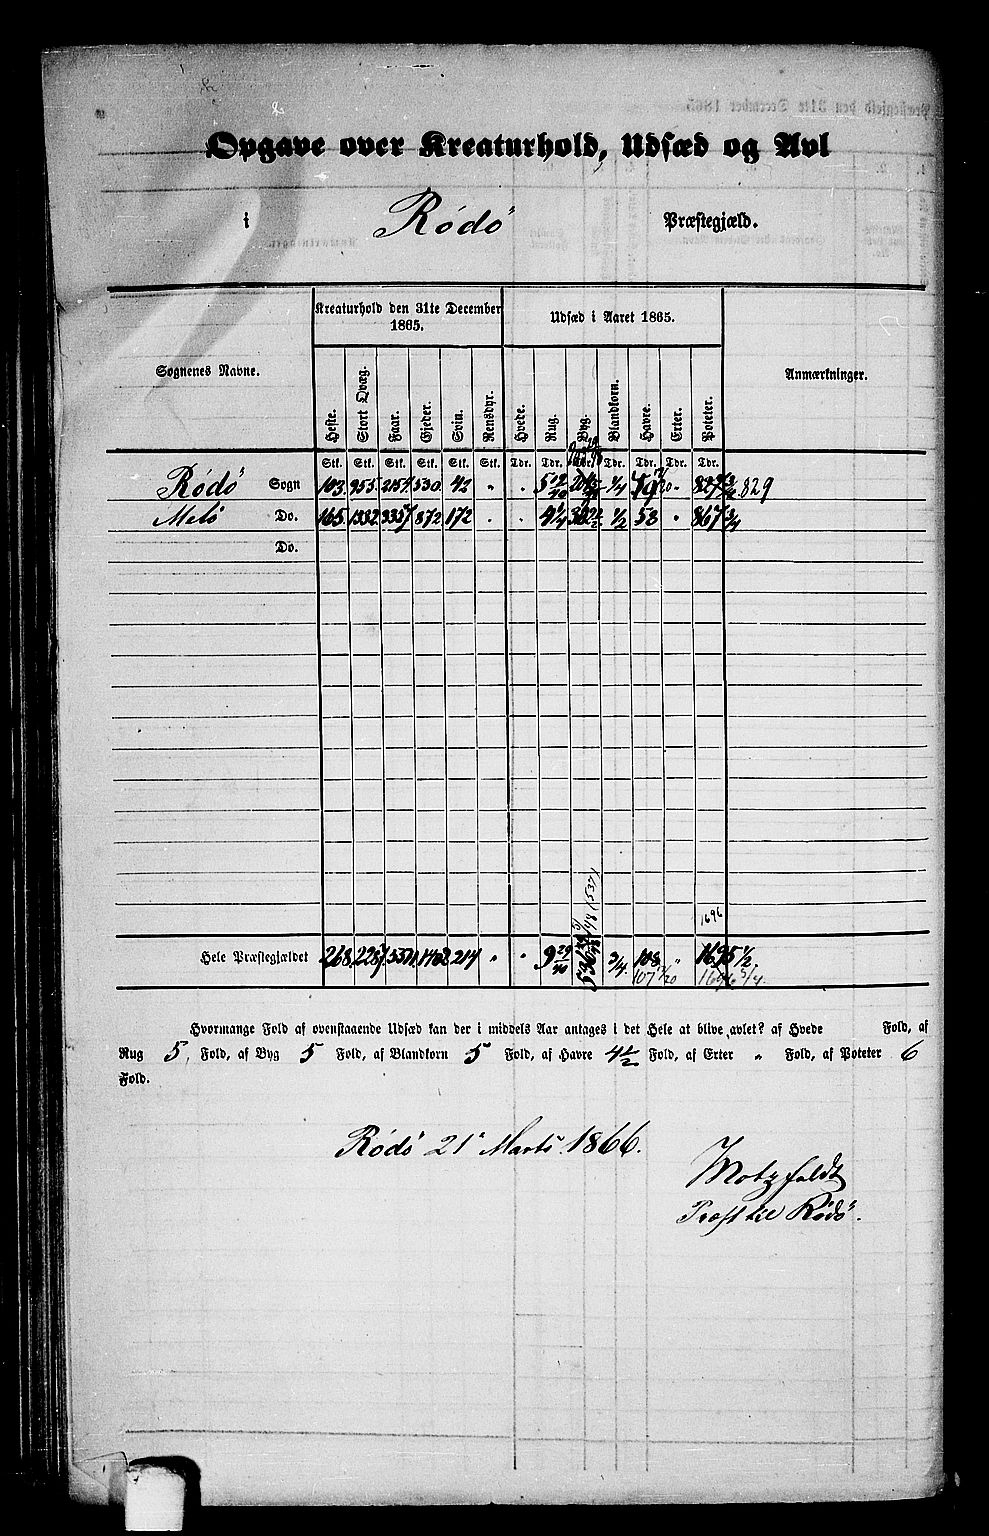 Opgave over Kreaturhold, Udsæd og Avl
i Rödö Præstegjæld.
Sognenes Navne. Kreaturhold den 31te December 1865. Udsæd i Aaret 1865. Anmærkninger.
Heste. Stort Qvæg. Faar. Gjeder. Sviin. Rensdyr. Hvede. Rug. Byg. Blandkorn. Havre. Erter. Poteter.
Stk. Stk. Stk. Stk. Stk. Stk. Tdr. Tdr. Tdr. Tdr. Tdr. Tdr. Tdr.
Rödö Sogn 103. 955. 2154. 530. 42 " " 5 12/40 1/4 " 827 3/4 829
Melö Do. 165. 1332. 3357 872 172 " " 4 1/4 1/2 53 " 867 3/4
Do.
1696
Hele Præstegjældet 268. 2287. 1402 214 " " 9 29/40 3/4 108 " 1695 1/2.
107 1696 3/4.
Hvormange Fold af ovenstaaende Udsæd kan der i middels Aar antages i det Hele at blive avlet? af Hvede Fold, af
Rug 5, Fold, af Byg 5 Fold, af Blandkorn 5 Fold, af Havre 4 1/2 Fold, af Erter " Fold, af Poteter 6
Fold.
Rödö 21 Marts 1866.
Motzfeldt
Præst til Rödö.